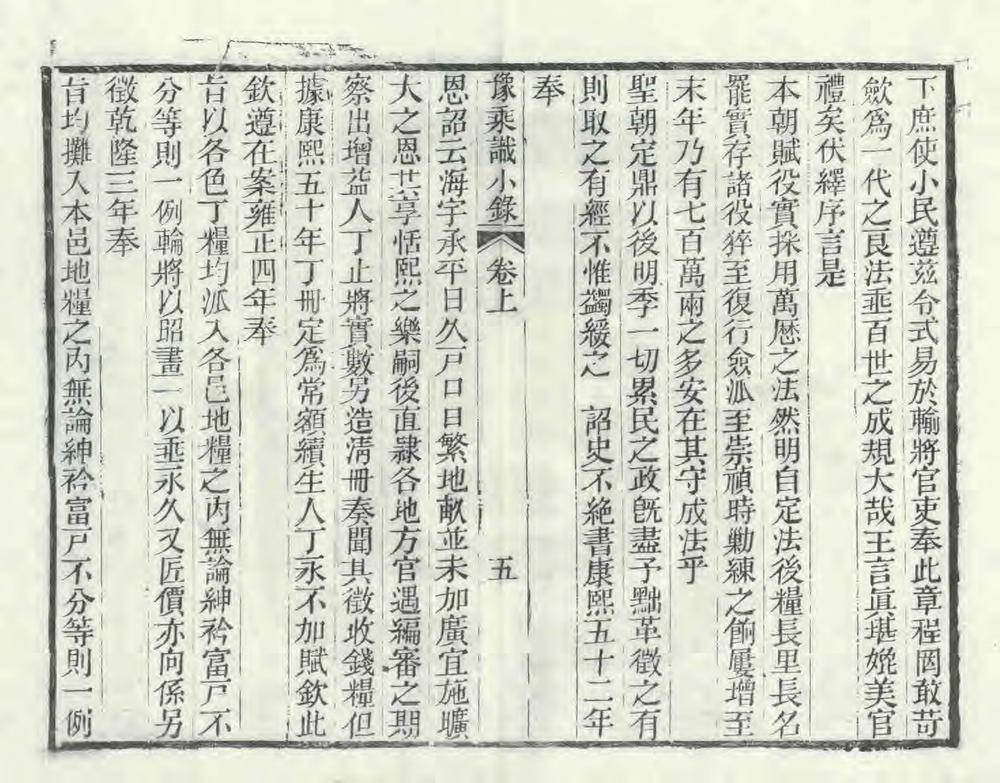 下庶使小民遵茲令式易於輸將官吏奉此章程罔敢苛
斂爲一代之良法垂百世之成規大哉王言眞堪媲美官
禮矣伏繹序言是
本朝賦役實採用萬歷之法然明自定法後糧長里長名
罷實存諸役猝至復行僉派至崇禎時勦練之餉屢增至
末年乃有七百萬兩之多安在其守成法乎
聖朝定鼎以後明季一切累民之政旣盡予黜革徵之有
則取之有經不惟蠲緩之 詔史不絕書康熙五十二年
奉
豫乘識小錄 卷上 五
恩詔云海宇承平日久戸口日繁地畝並未加廣宜施曠
大之恩共享恬熙之樂嗣後直隸各地方官遇編審之期
察出增益人丁止將實數另造淸冊奏聞其徵收錢糧但
據康熙五十年丁冊定爲常額續生人丁永不加賦欽此
欽遵在案雍正四年奉
旨以各色丁糧均派入各邑地糧之內無論紳衿富戸不
分等則一例輪將以昭畫一以垂永久又匠價亦向係另
徵乾隆三年奉
旨均攤入本邑地糧之內無論紳衿富戸不分等則一例